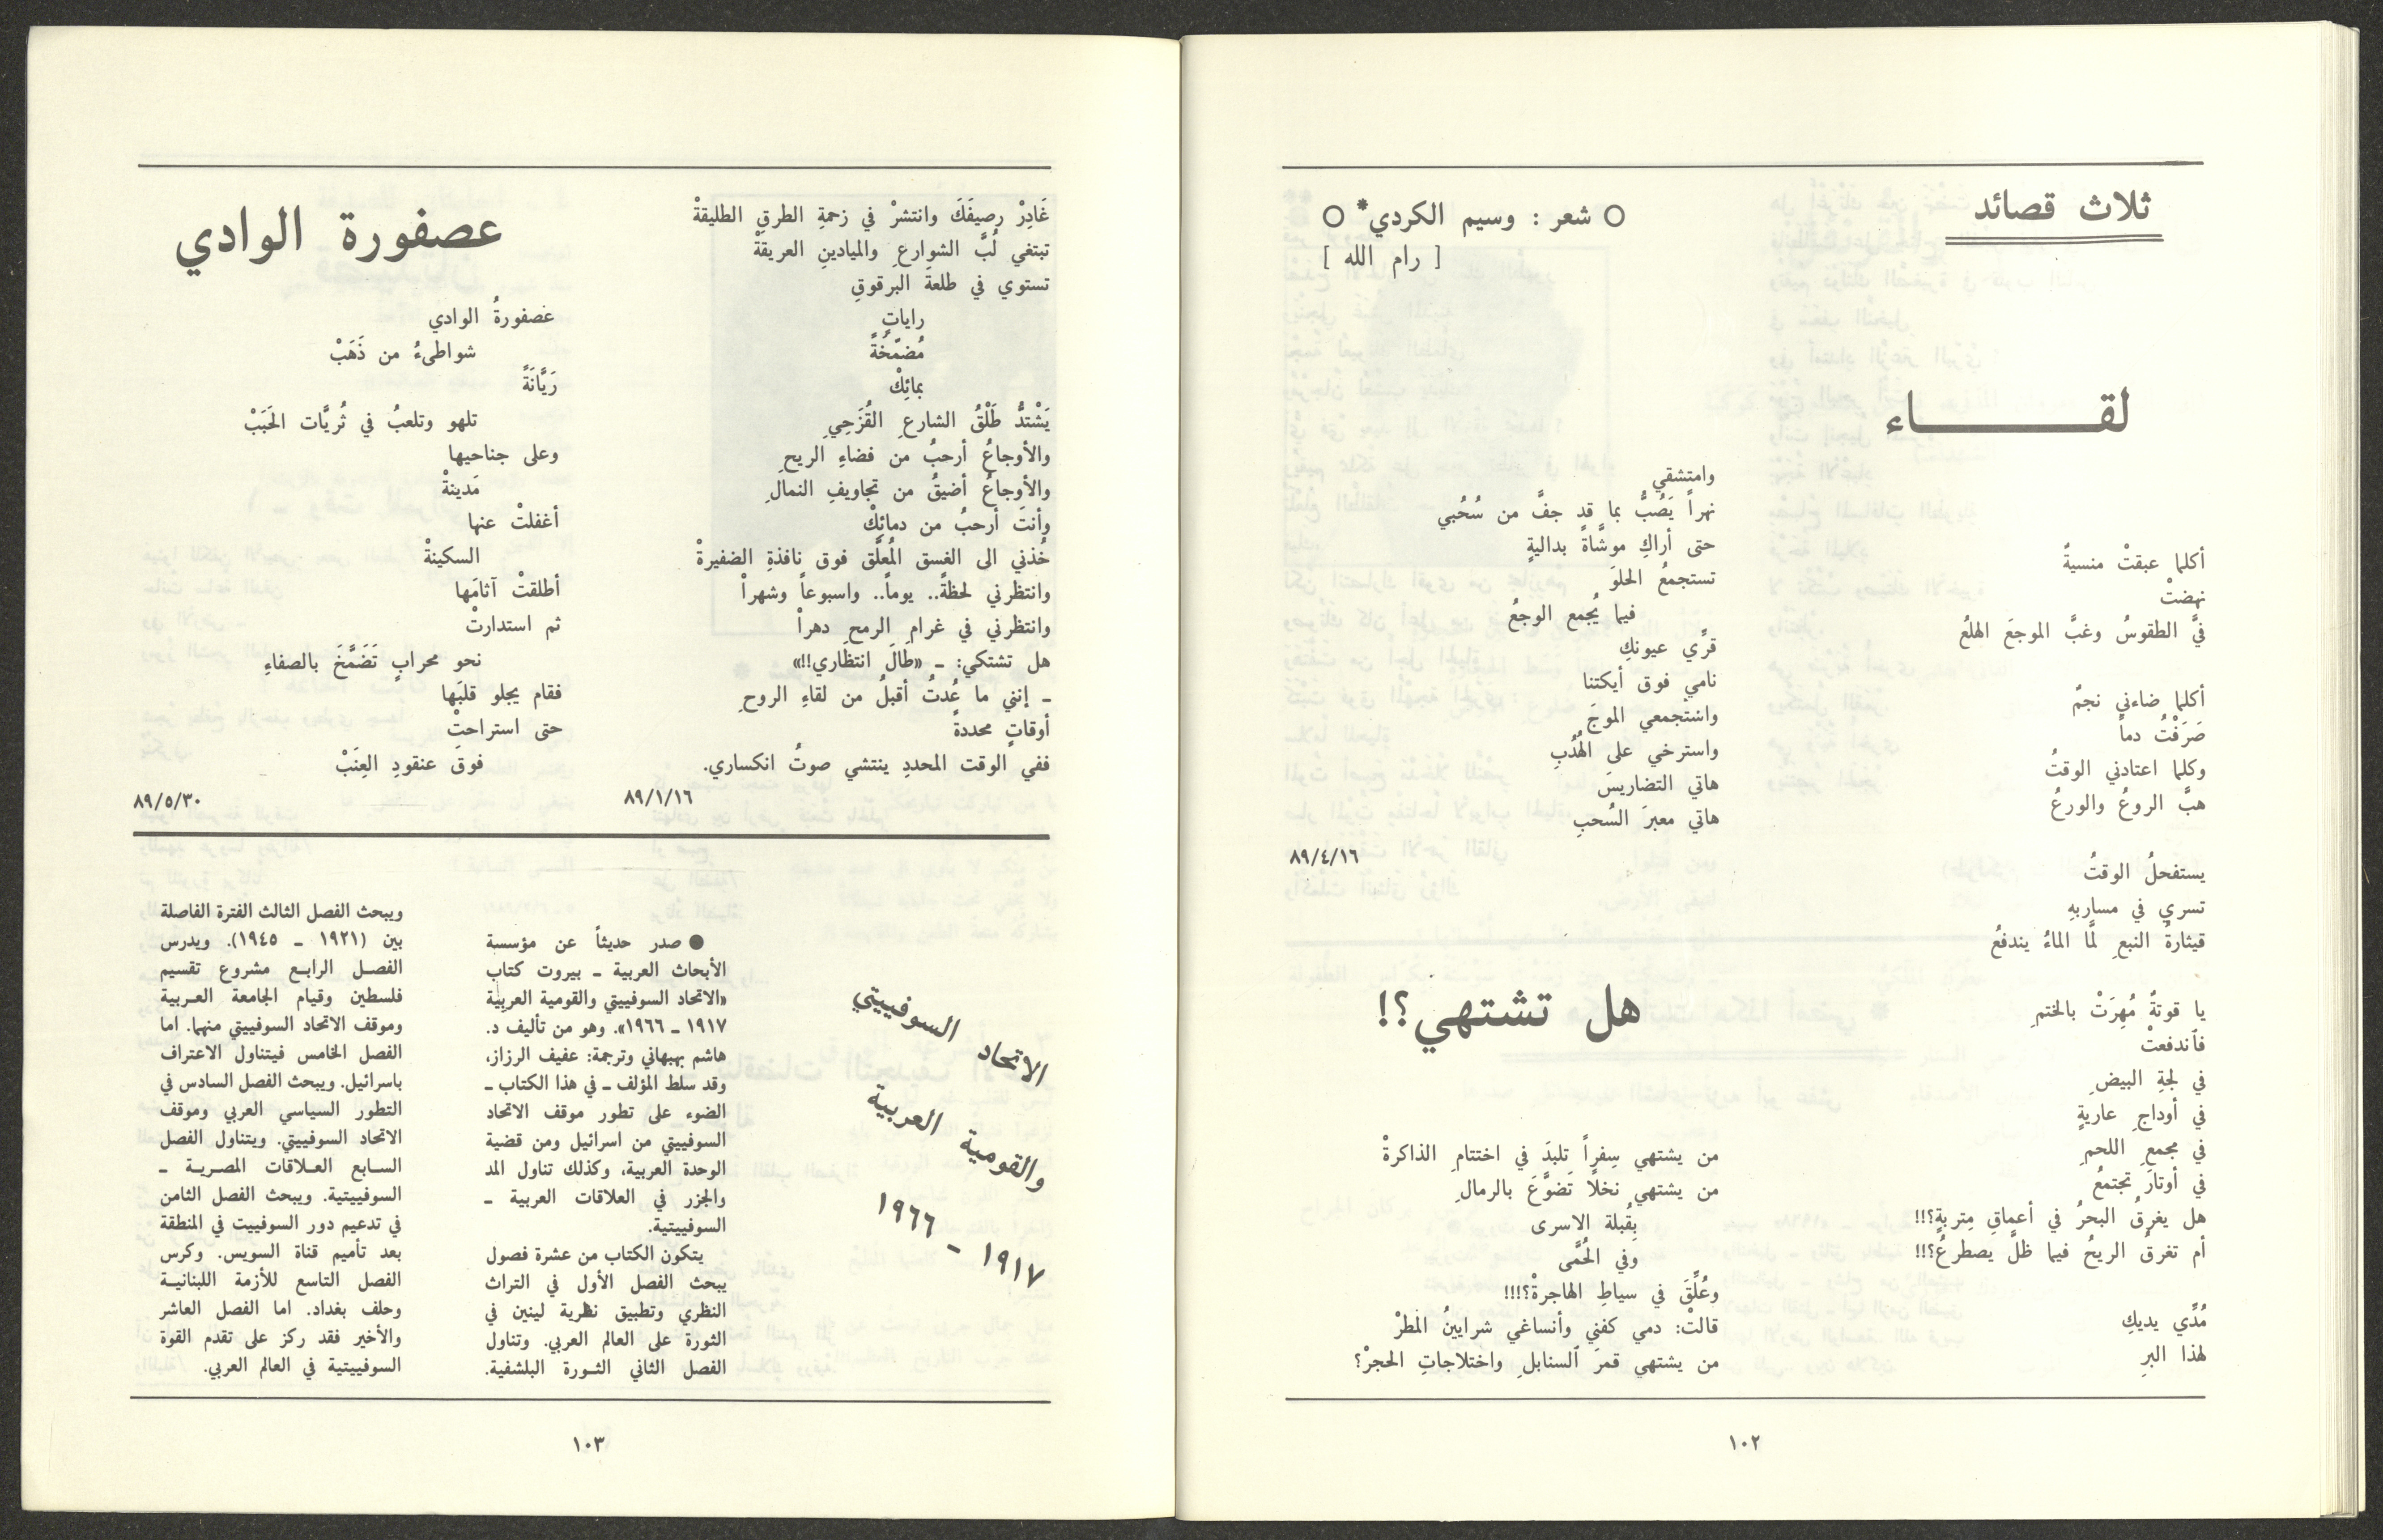 ثلاث قصائد
○ شعر : وسيم الكردي* ○
[ رام الله ]
لقـــــــاء
أكلما عبقتْ منسيةٌ
نهضتْ
فيَّ الطقوسُ وغبَّ الموجعَ الهلعُ
أكلما ضاءني نجمٌ
صَرَفْتُ دماً
وكلما اعتادني الوقتُ
هبَّ الروعُ والورعُ
يستفحلُ الوقتُ
تسري في مساربهِ
قيثارةُ النبعِ لمَّا الماءُ يندفعُ
يا قوتةٌ مُهِرَتْ بالختمِ
فاندفعتْ
في لجةِ البيضِ
في أوداجِ عاريةٍ
في مجمعِ اللحمِ
في أوتارَ تجتمعُ
هل يغرقُ البحرُ في أعماقِ مِتربةٍ؟!!
أم تغرقُ الريحُ فيما ظلَّ يصطرعُ؟!!
مُدِّي يديكِ
لهذا البرِ
وامتشقي
نهراً يَصُبُّ بما قد جفَّ من سُحُبي
حتى أراكِ موشَّاةً بداليةٍ
تستجمعُ الحلوَ
فيما يُجمع الوجعُ
قرِّي عيونكِ
نامي فوق أيكتنا
واستجمعي الموجَ
واسترخي على الهُدُبِ
هاتي التضاريسَ
هاتي معبرَ السُحبِ
٨٩/٤/١٦
هل تشتهي؟!
من يشتهي سِفراً تلبدَ في اختتامِ الذاكرةْ
من يشتهي نخلاً تَضوَّعَ بالرمالِ
بِقُبلة الاسرى
وفي الحُمَّى
وعُلِّقَ في سياطِ الهاجرةْ؟!!!
قالتْ: دمي كفني وأنساغي شرايينُ المَطرْ
من يشتهي قمرَ السنابلِ واختلاجاتِ الحجرْ؟
١٠٢
غَادِرْ رصيفَكَ وانتشرْ في زحمةِ الطرقِ الطليقةْ
تبتغي لُبَّ الشوارعِ والميادينِ العريقةْ
تستوي في طلعةَ البرقوقِ
راياتٍ
مُضمّخَةً
بمائِكْ
يَشْتدُّ طَلْقُ الشارعِ القُزَحِيِ
والأوجاعُ أرحبُ من فضاءِ الريحِ
والأوجاعُ أضيقُ من تجاويفِ النمالِ
وأنتَ أرحبُ من دمائِكْ
خُذني الى الغسق المُعلَّق فوق نافذةِ الضفيرةْ
وانتظرني لحظةً.. يوماً.. واسبوعاً وشهراْ
وانتظرني في غرامِ الرمحِ دهراْ
هل تشتكي: ـ «طَالَ انتظاري!!»
ـ إنني ما عُدتُ أقبلُ من لقاءِ الروحِ
أوقاتٍ محددةً
ففي الوقت المحددِ ينتشي صوتُ انكساري.
٨٩/١/١٦
عصفورة الوادي
عصفورةُ الوادي
شواطىءُ من ذَهَبْ
رَيَّانَةً
تلهو وتلعبُ في ثُريَّات الحَبَبْ
وعلى جناحيها
مَدينةْ
أغفلتْ عنها
السكينةْ
أطلقتْ آثامَها
ثم استدارتْ
نحو محرابٍ تَضَمَّخَ بالصفاءِ
فقام يجلو قلبَها
حتى استراحتْ
فوقَ عنقودِ العِنَبْ
٨٩/٥/٣٠
الاتحاد السوفييتي
والقومية العربية
١٩١٧ - ١٩٦٦
● صدر حديثاً عن مؤسسة
الأبحاث العربية ـ بيروت كتاب
«الاتحاد السوفييتي والقومية العربية
١٩١٧ ـ ١٩٦٦». وهو من تأليف د.
هاشم بهبهاني وترجمة: عفيف الرزاز،
وقد سلط المؤلف ـ في هذا الكتاب ـ
الضوء على تطور موقف الاتحاد
السوفييتي من اسرائيل ومن قضية
الوحدة العربية، وكذلك تناول المد
والجزر في العلاقات العربية ـ
السوفييتية.
يتكون الكتاب من عشرة فصول
يبحث الفصل الأول في التراث
النظري وتطبيق نظرية لينين في
الثورة على العالم العربي. وتناول
الفصل الثاني الثورة البلشفية.
ويبحث الفصل الثالث الفترة الفاصلة
بين (١٩٢١ ـ ١٩٤٥). ويدرس
الفصل الرابع مشروع تقسيم
فلسطين وقيام الجامعة العربية
وموقف الاتحاد السوفييتي منهما. اما
الفصل الخامس فيتناول الاعتراف
باسرائيل. ويبحث الفصل السادس في
التطور السياسي العربي وموقف
الاتحاد السوفييتي. ويتناول الفصل
السابع العلاقات المصرية ـ
السوفييتية. ويبحث الفصل الثامن
في تدعيم دور السوفييت في المنطقة
بعد تأميم قناة السويس. وكرس
الفصل التاسع للأزمة اللبنانية
وحلف بغداد. اما الفصل العاشر
والأخير فقد ركز على تقدم القوة
السوفييتية في العالم العربي.
١٠٣